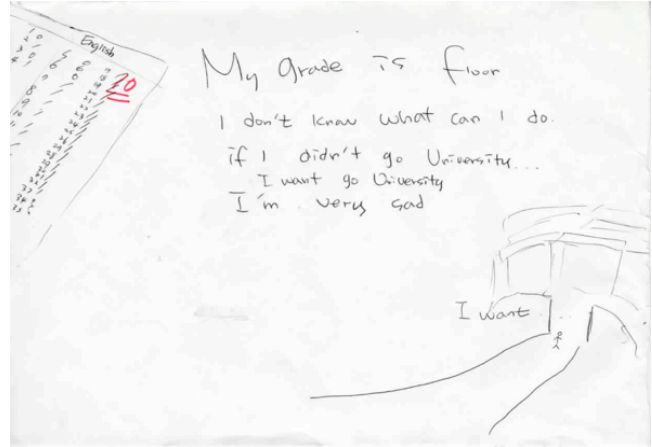 English
20
My grade is floor
I don't know what can I do.
if I didn't go University...
I want go University
I'm very sad
I want